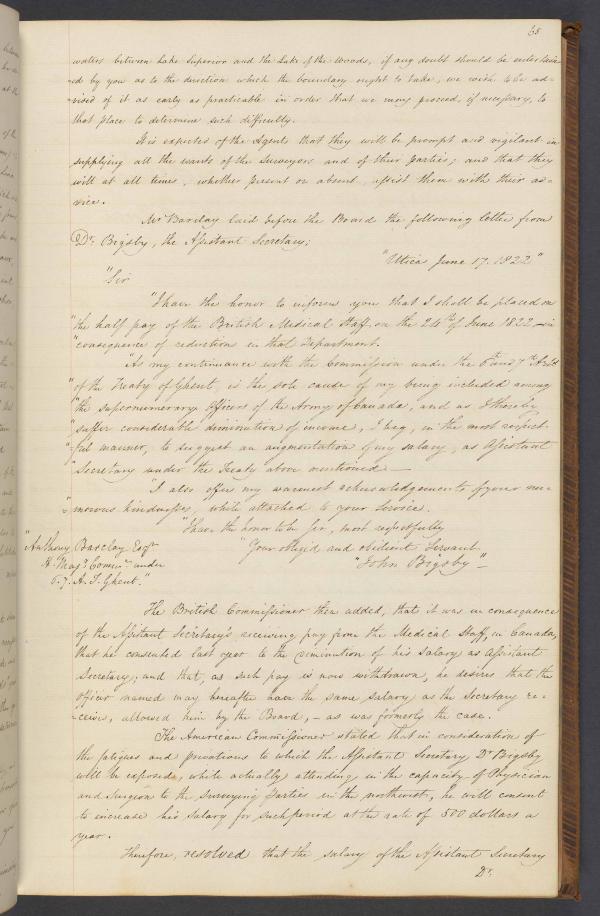 68
waters between Lake Superior and the Lake of the Woods, if any doubt should be entertain-
-ed by you as to the direction which the boundary ought to take, we wish to be ad-
-vised of it as early as practicable in order that we may proceed, if necessary, to
that place to determine such difficulty.
It is expected of the Agents that they will be prompt and vigilant in
supplying all the wants of the Surveyors and of their parties; and that they
will at all times, whether present or absent, assist them with their ad-
-vice.
Mr Barclay laid before the Board the following letter from
Dr. Bigsby, the Assistant Secretary;
"Utica June 17. 1822"
"Sir
"I have the honor to inform you that I shall be placed on
"the half pay of the British Medical Staff, on the 24th of June 1822 - in
"consequence of reduction in that Department.
"As my continuance with the Commission under the 6th and 7th Arts
"of the Treaty of Ghent, is the sole cause of my being included among
"the supernumerary Officers of the Army of Canada, and as I thereby
"suffer considerable diminution of income, I beg, in the most respect-
"-ful manner, to suggest an augmentation of my salary, as Assistant
"Secretary under the Treaty above mentioned —
"I also offer my warmest acknowledgements of your nu-
"merous kindnesses, while attached to your Service.
"I have the honor to be Sir, most respectfully
"Anthony Barclay Esqr
"Your obliged and obedient Servant.
H. Majs Commr. under
"John Bigsby"_
6. 7. A. T. Ghent."
The British Commissioner then added, that it was in consequence
of the Assistant Secretary's receiving pay from the Medical Staff, in Canada,
that he consented last year to the diminution of his salary as Assistant
Secretary; and that, as such pay is now withdrawn, he desires that the
Officer named may hereafter have the same salary as the Secretary re-
-ceives, allowed him by the Board, - as was formerly the case.
The American Commissioner stated that in consideration of
the fatigues and privations to which the Assistant Secretary Dr Bigsby
will be exposed, while actually attending in the capacity of Physician
and Surgeon to the surveying parties in the northwest, he will consent
to increase his salary for such period at the rate of 500 dollars a
year.
Therefore, resolved that the salary of the Assistant Secretary
Dr.